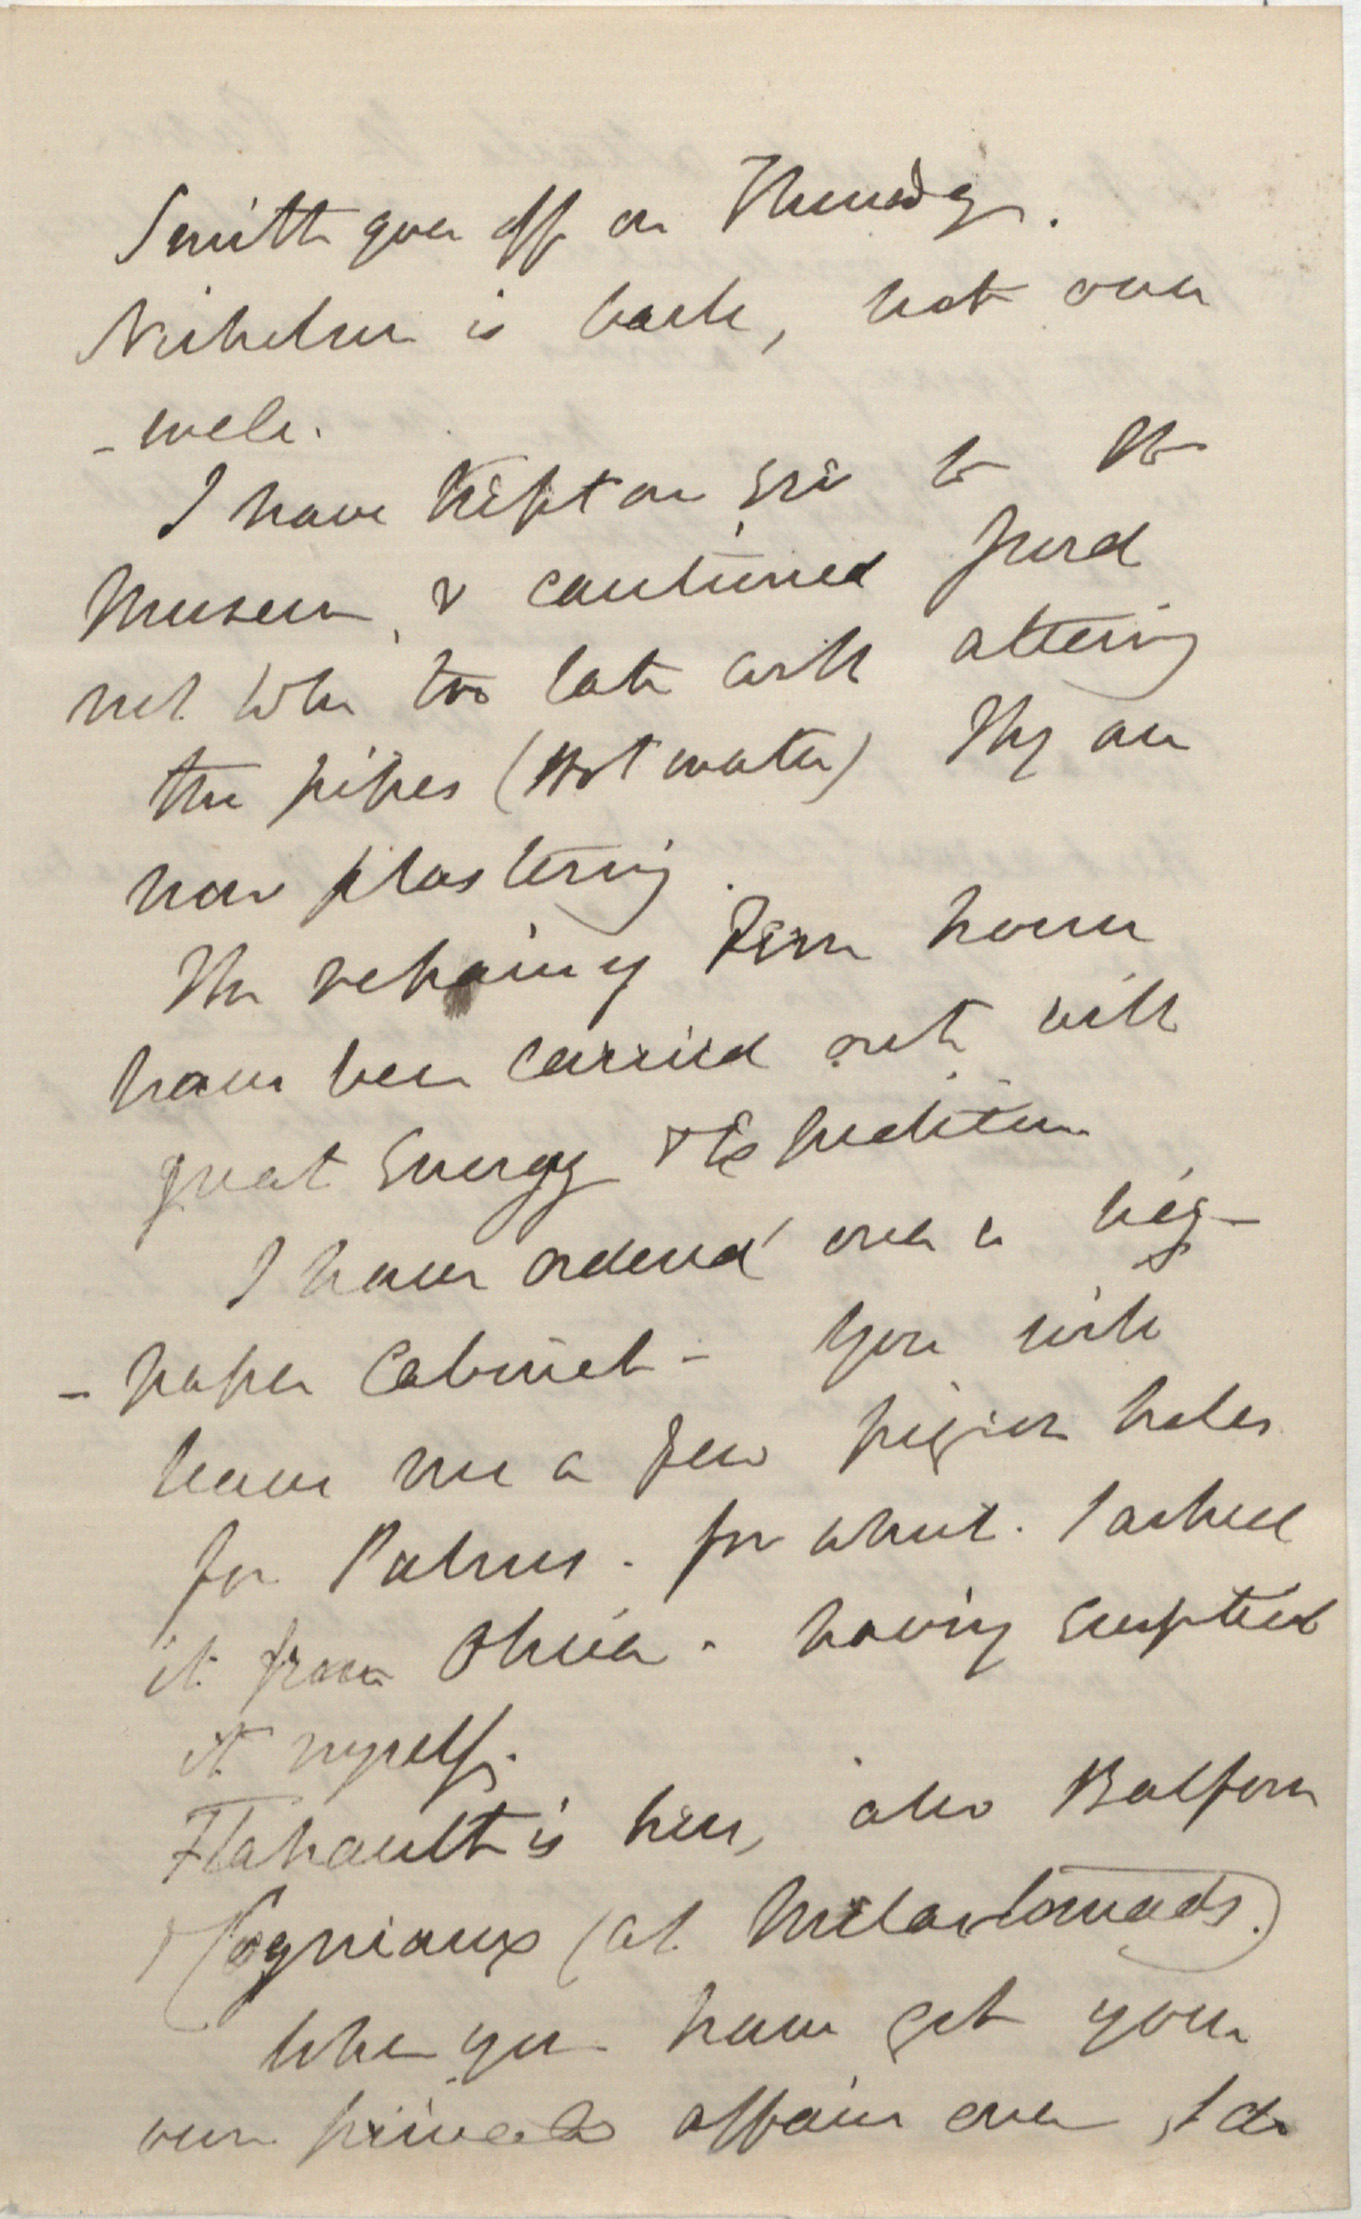 Smith goes off on Thursday.
Nicholson is back, not over
-well.
I have kept an Eye to the
Museum, & cautioned Ford
not to be too late with altering
the pipes (Hot water) They are
now plastering.
The repairing Fern house
have been carried out with
great Energy & Expedition
I have ordered over a big
-paper Cabinet - You will
leave me a few pigeon holes
for Palms. for which I asked
it from Oliver. having emptied
it myself.
Flahault is here, also Balfour
& Cogniaux (at Melastomads.)
When you have got your
own private affairs over, I do